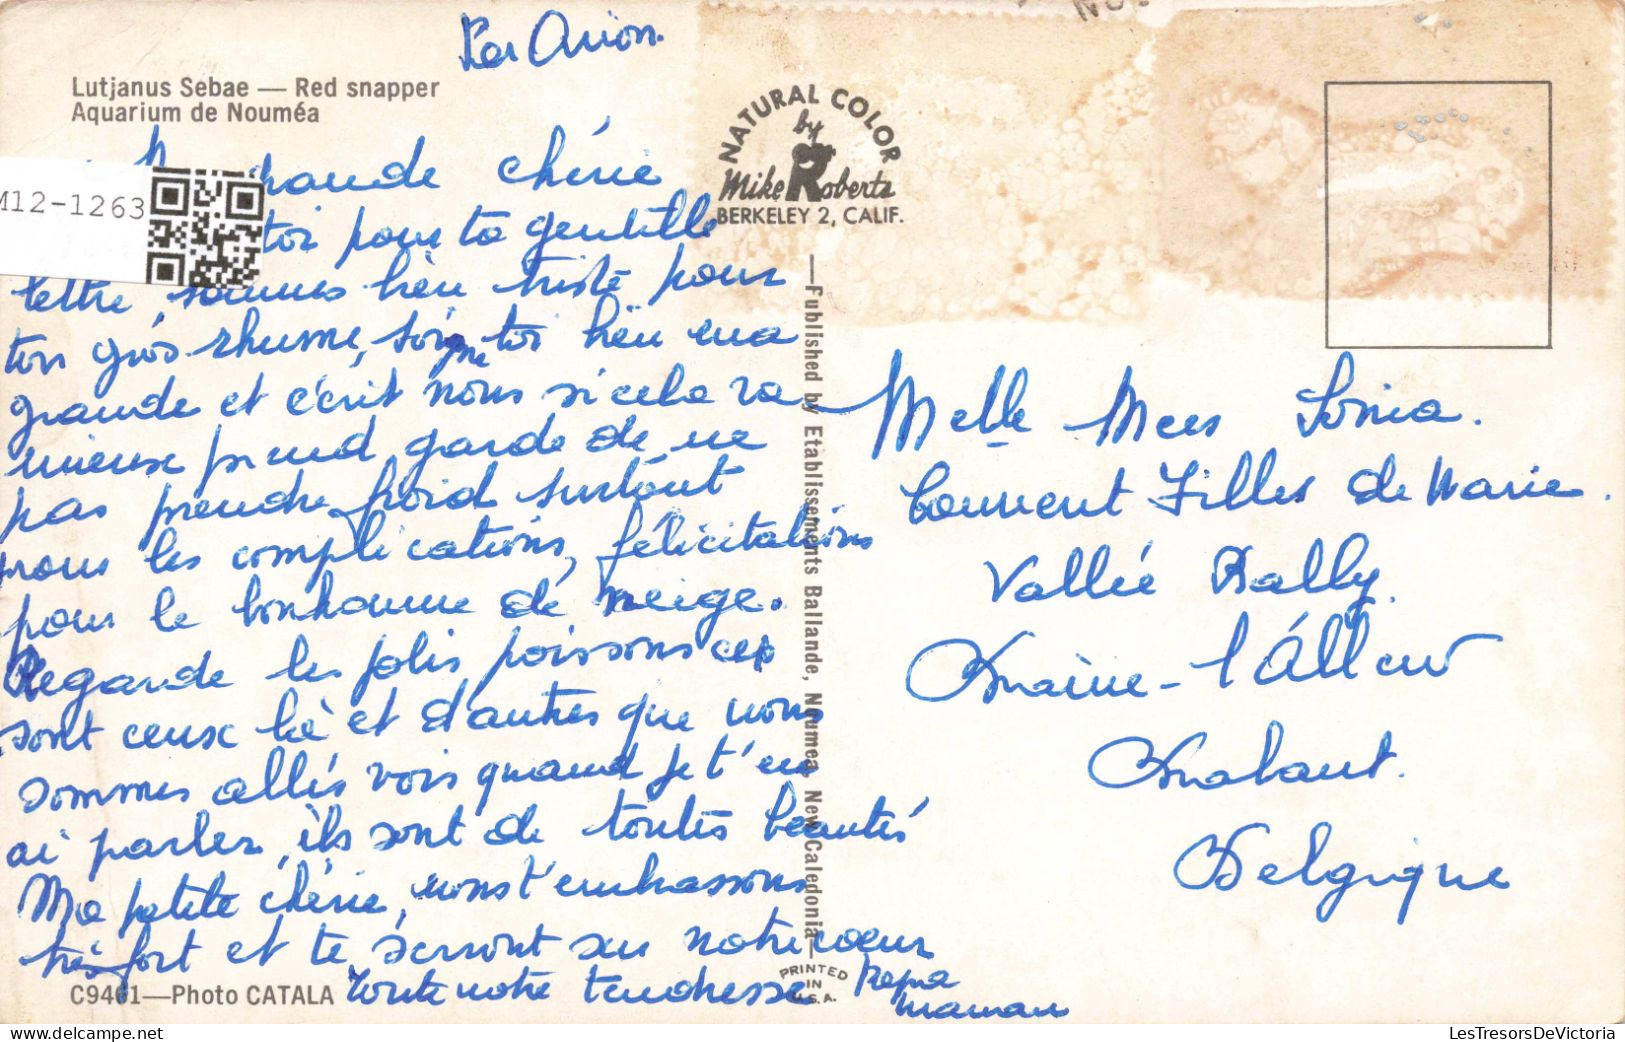 Par Avion.
Lutjanus Sebae — Red snapper
Aquarium de Nouméa
M12-1263
NATURAL COLOR
by
Mike Roberts
BERKELEY 2, CALIF.
grande chérie
toi pour ta gentille
lettre, sommes bien triste pour
ton gros rhume, soigne toi bien ma
grande et écrit nous si cela va
mieux prend garde de ne
pas prendre froid surtout
pour les complications, félicitations
pour le bonhomme de neige.
Regarde les jolis poissons ces
sont ceux là et d'autres que nous
sommes allés voir quand je t'en
ai parler, ils sont de toutes beautés
Ma petite chérie, nous t'embrassons
très fort et te serront sur notre coeur
toute notre tendresse
Papa
maman
C9461—Photo CATALA
—Published by Etablissements Ballande, Noumea, New Caledonia—
PRINTED
IN
U.S.A.
Melle Mees Sonia.
Couvent Filles de Marie.
Vallée Bally.
Braine-l'Alleud
Brabant.
Belgique
LesTresorsDeVictoria.com